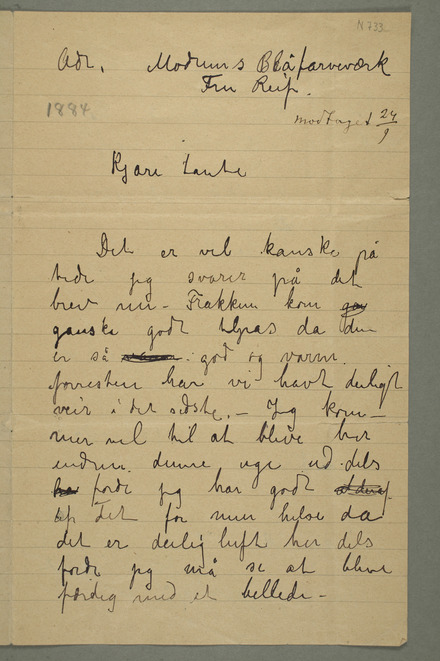 N 733
Adr. Modums Blåfarveværk
Fru Reif.
1884
modtaget 24/9
Kjære Tante
Det er vel kanske på
tide jeg svarer på det
brev nu – Frakken kom
ganske godt tilpas da den
er så god og varm.
forresten har vi havt deiligt
veir i det sidste. – Jeg kom–
mer vel til at blive her
endnu denne uge ud. dels
fordi jeg har godt
af det for min helse da
det er deilig luft her dels
fordi jeg må se at blive
færdig med et billede –